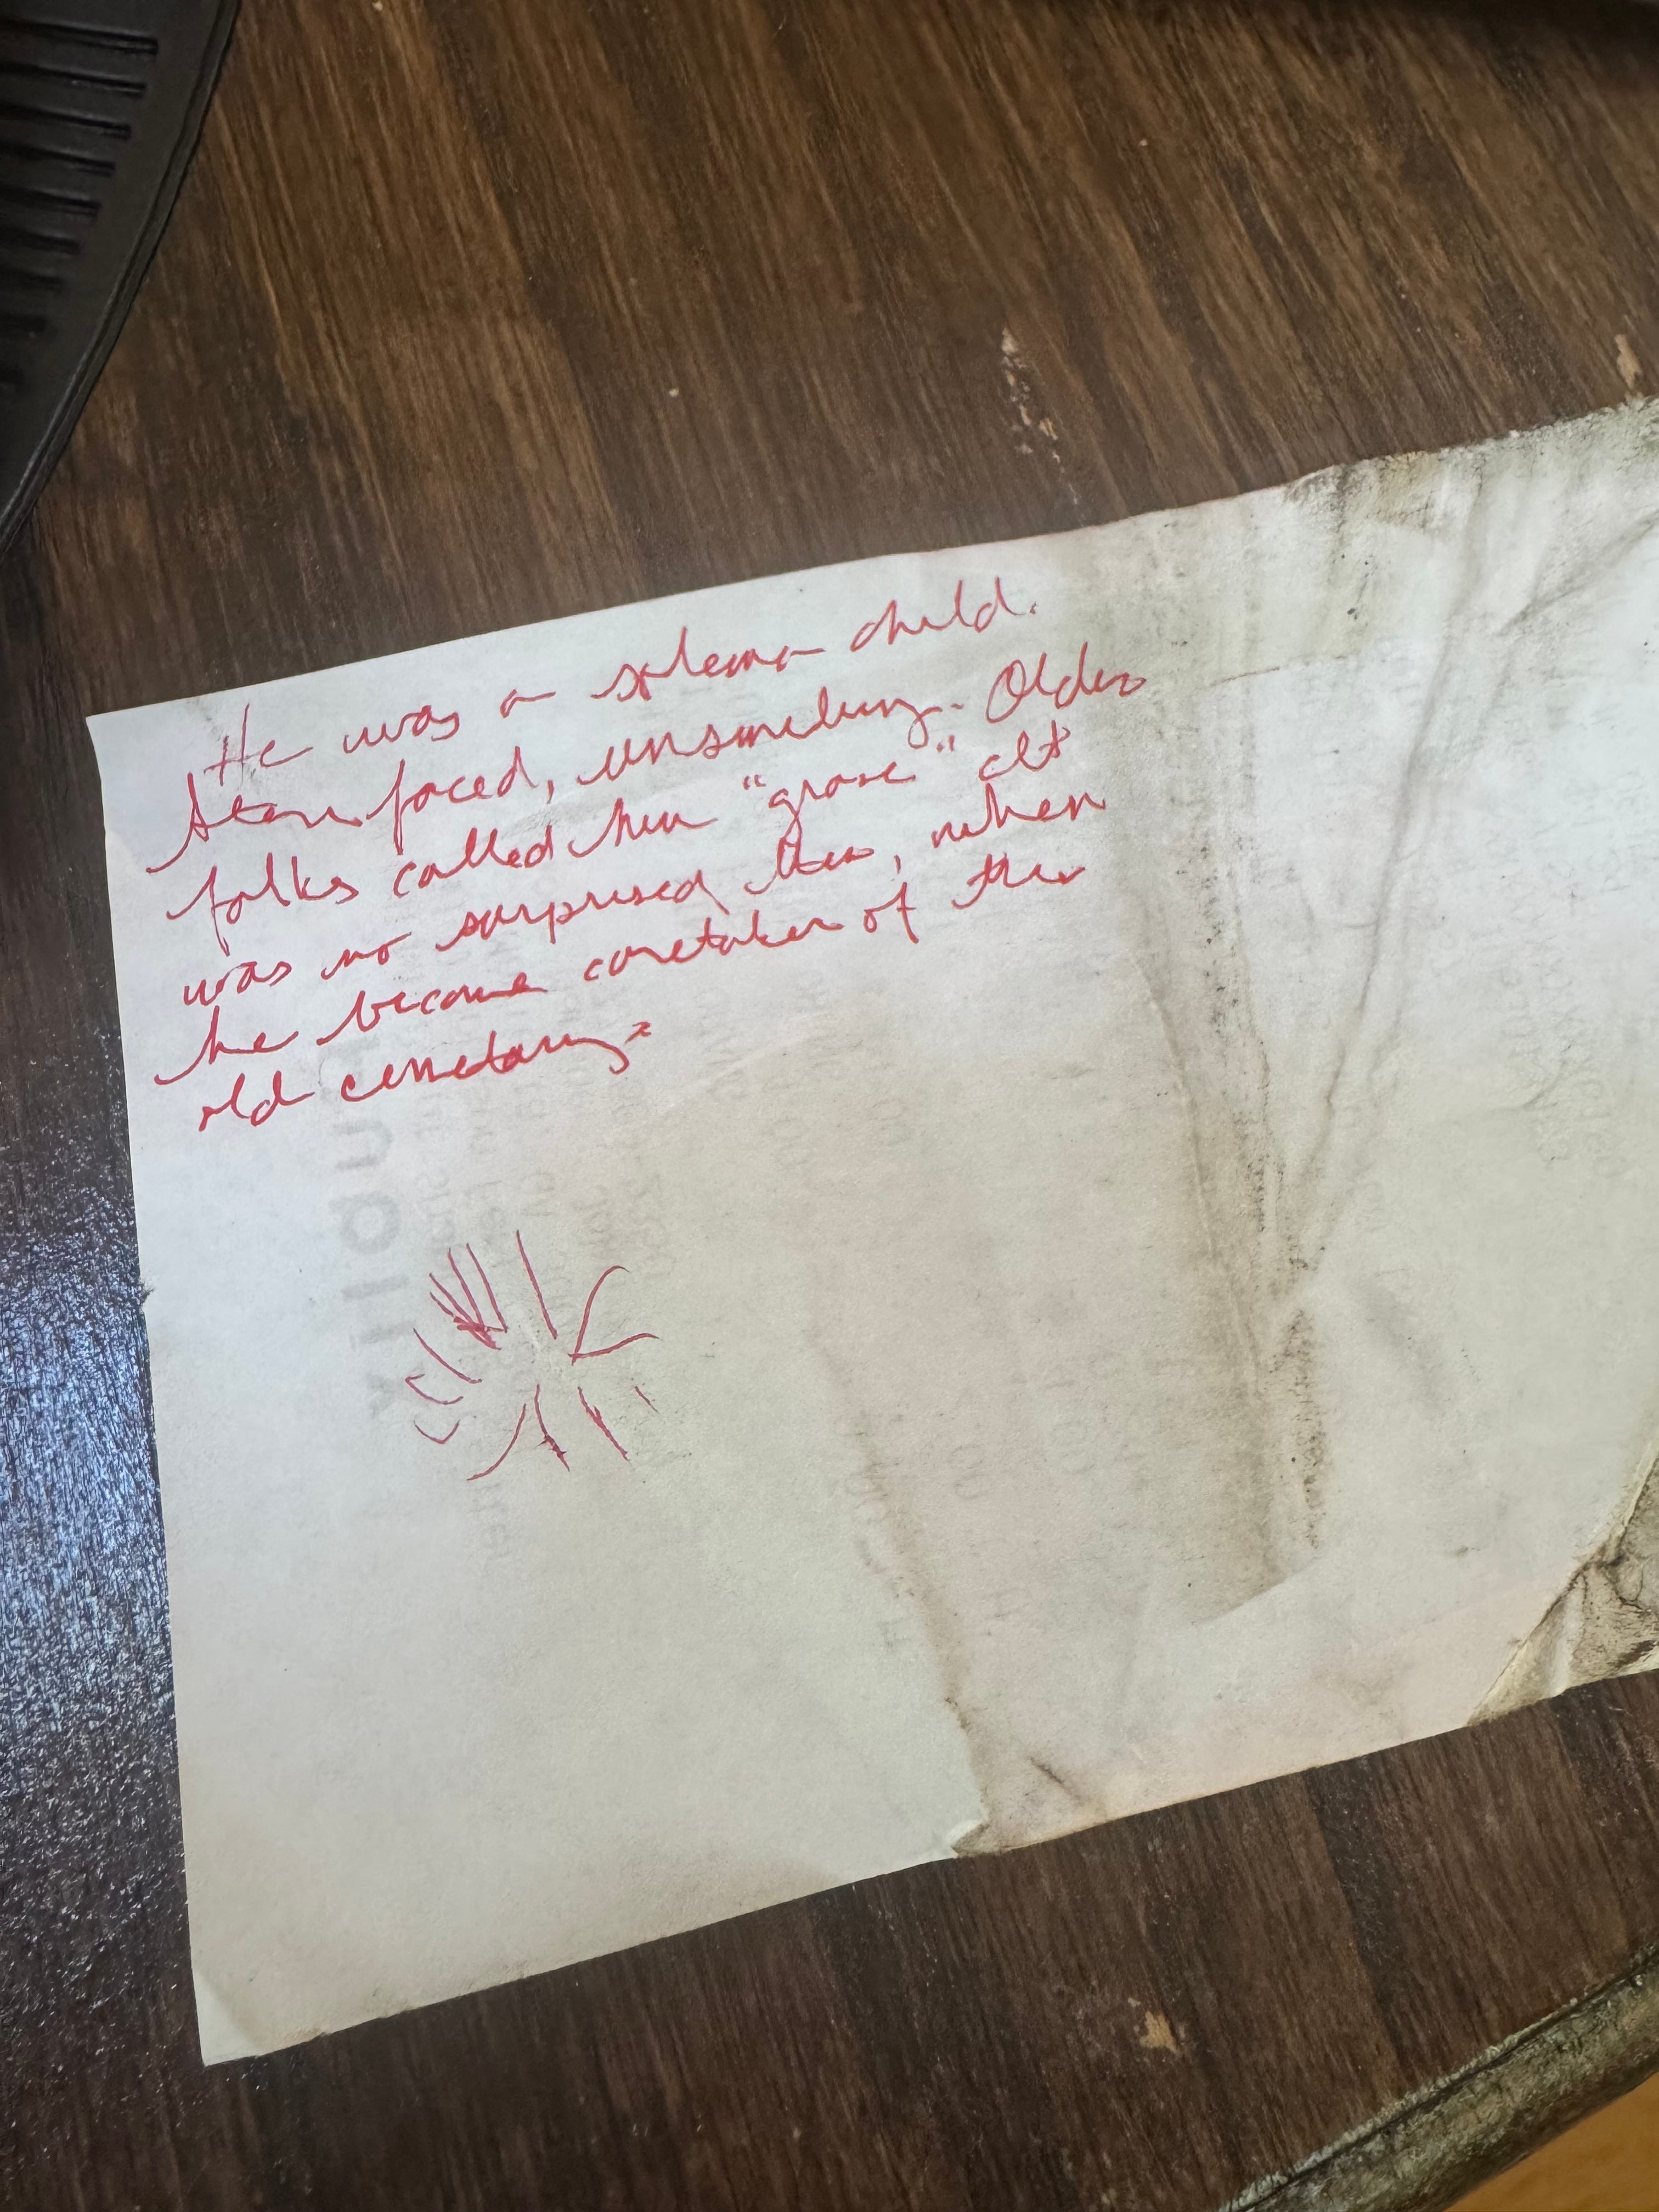 He was a solemn child.
Stern faced, unsmiling. Older
folks called him "grave" it
was no surprised then, when
he became caretaker of the
old cemetary.